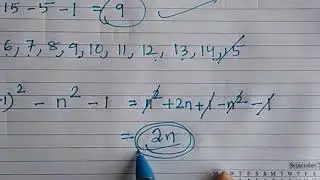 15 - 5 - 1 = 9
6, 7, 8, 9, 10, 11, 12, 13, 14, 15
1)² - n² - 1 = n² + 2n + 1 - n² - 1
= 2n
September